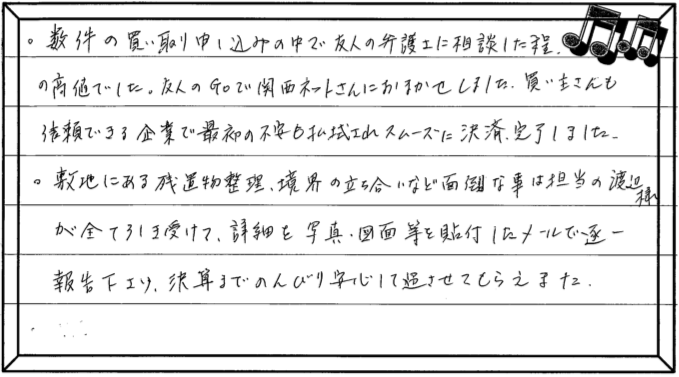 。数件の買い取り申し込みの中で友人の弁護士に相談した程、
の高値でした。友人のGoで関西ネットさんにおまかせしました。買い主さんも
信頼できる企業で最初の不安も払拭されスムーズに決済、完了しました。
。敷地にある残置物整理、境界の立ち合いなど面倒な事は担当の渡辺様
が全て引き受けて、詳細を写真・図面等を貼付したメールで逐一
報告下さり、決算までのんびり安心して過させてもらえました。